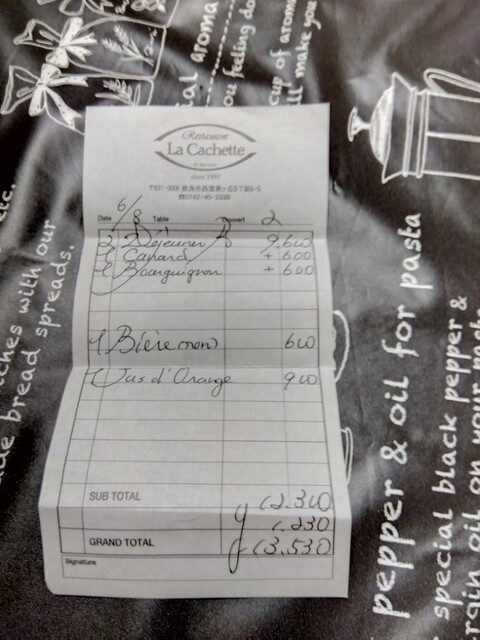 Restaurant
La Cachette
since 1997
〒631-0006 奈良市西登美ヶ丘5丁目3-5
☎0742-45-2330
Date 6/8 Table 2
2 Déjeuner 9,600
1 Canard + 600
1 Bourguignon + 600
1 Bière mono 600
1 Jus d'Orange 900
SUB TOTAL ¥ 12.300
1.230
GRAND TOTAL ¥ 13.530
Signature
etc.
ches with our
de bread spreads.
al aroma
ou feeling do
cup of aroma
ll make you
pepper & oil for pasta
special black pepper &
rgin oil on your